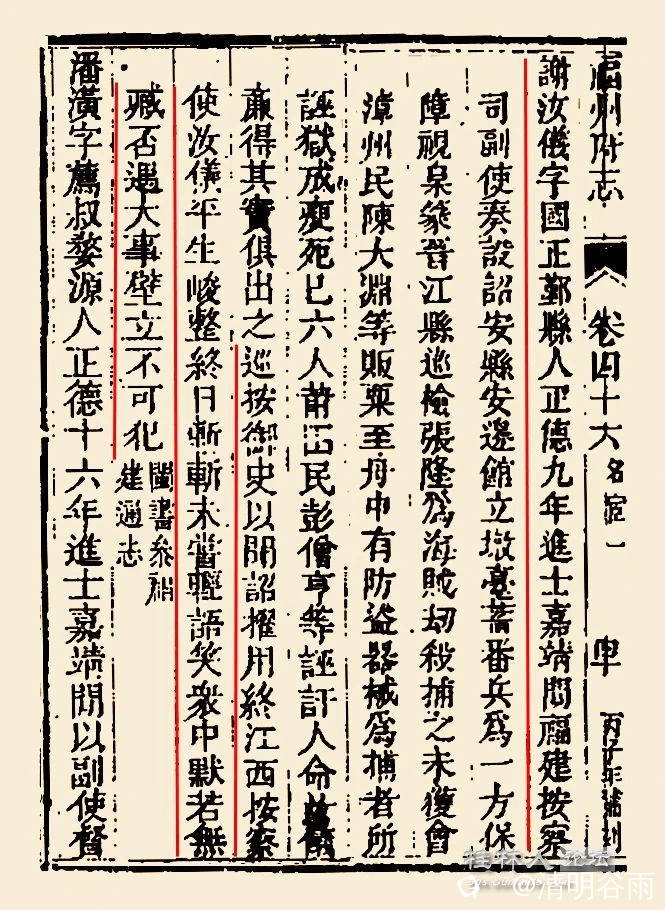 福州府志 卷四十六 名宦一 丙子年補刊
謝汝儀字國正鄞縣人正德九年進士嘉靖間福建按察
司副使奏設詔安縣安邊館立墩臺蓄番兵爲一方保
障視臬篆晉江縣巡檢張隆爲海賊刧殺捕之未獲會
漳州民陳大淵等販粟至舟中有防盜器械爲捕者所
誣獄成瘐死已六人莆田民彭僧亨等誣訐人命
廉得其實俱出之巡按御史以開詔擢用終江西按察
使汝儀平生峻整終日嶄嶄未嘗輕語笑衆中默若無
臧否遇大事壁立不可犯
閩書參福
建通志
潘潢字薦叔婺源人正德十六年進士嘉靖間以副使督
@清明谷雨